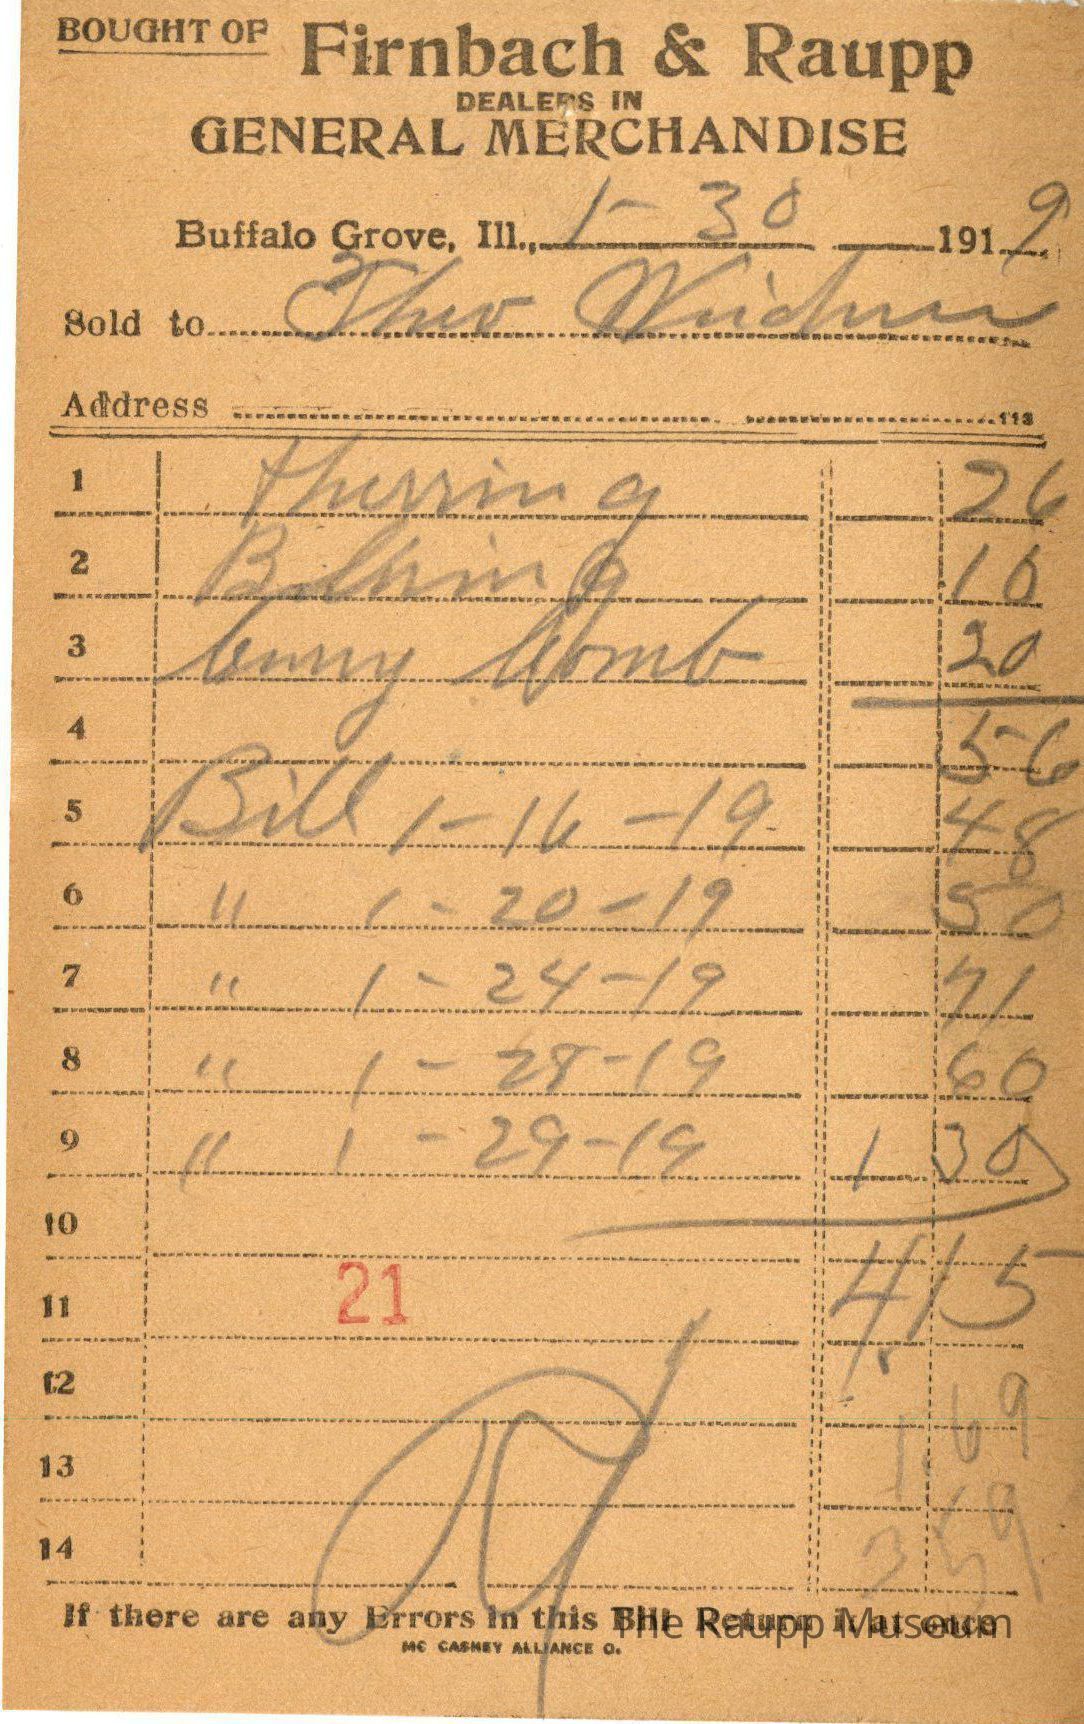 BOUGHT OF Firnbach & Raupp
DEALERS IN
GENERAL MERCHANDISE
Buffalo Grove, Ill., 1-30 1919
Sold to Theo Weidner
Address 113
1 Herring 26
2 10
3 Comb 20
4 56
5 Bill 1-16-19 48
6 " 1-20-19 50
7 " 1-24-19 71
8 " 1-28-19 60
9 " 1-29-19 1 30
10
11 21 4 15
12
1.69
13
14 3 59
If there are any Errors in this Bill Return it at once
The Raupp Museum
MC CASKEY ALLIANCE O.